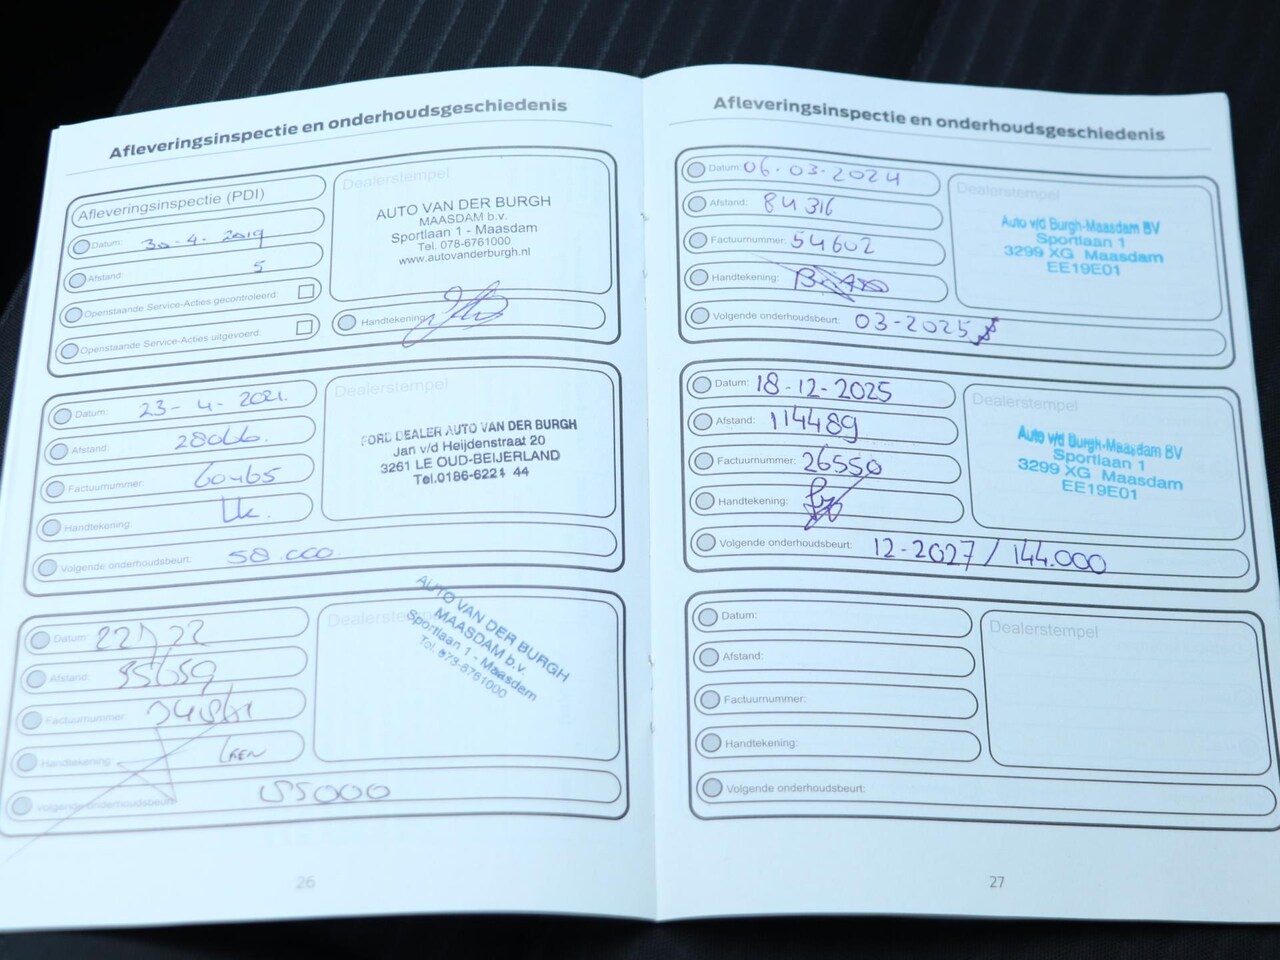 Afleveringsinspectie en onderhoudsgeschiedenis
Afleveringsinspectie (PDI)
Datum: 30-4-2019
Afstand: 5
Openstaande Service-Acties gecontroleerd:
Openstaande Service-Acties uitgevoerd:
Dealerstempel
AUTO VAN DER BURGH
MAASDAM b.v.
Sportlaan 1 - Maasdam
Tel. 078-6761000
www.autovanderburgh.nl
Handtekening:
Datum: 23-4-2021.
Afstand:
Factuurnummer: 60465
Handtekening:
Volgende onderhoudsbeurt: 58.000
Dealerstempel
FORD DEALER AUTO VAN DER BURGH
Jan v/d Heijdenstraat 20
3261 LE OUD-BEIJERLAND
Tel.0186-6221 44
Datum:
Afstand:
Factuurnummer:
Handtekening:
Volgende onderhoudsbeurt:
Dealerstempel
AUTO VAN DER BURGH
MAASDAM b.v.
Sportlaan 1 - Maasdam
Tel. 078-6761000
26
Afleveringsinspectie en onderhoudsgeschiedenis
Datum: 06-03-2024
Afstand: 84316
Factuurnummer: 54602
Handtekening:
Volgende onderhoudsbeurt: 03-2025
Dealerstempel
Auto v/d Burgh-Maasdam BV
Sportlaan 1
3299 XG Maasdam
EE19E01
Datum: 18-12-2025
Afstand: 114489
Factuurnummer: 26550
Handtekening:
Volgende onderhoudsbeurt: 12-2027 / 144.000
Dealerstempel
Auto v/d Burgh-Maasdam BV
Sportlaan 1
3299 XG Maasdam
EE19E01
Datum:
Afstand:
Factuurnummer:
Handtekening:
Volgende onderhoudsbeurt:
Dealerstempel
27